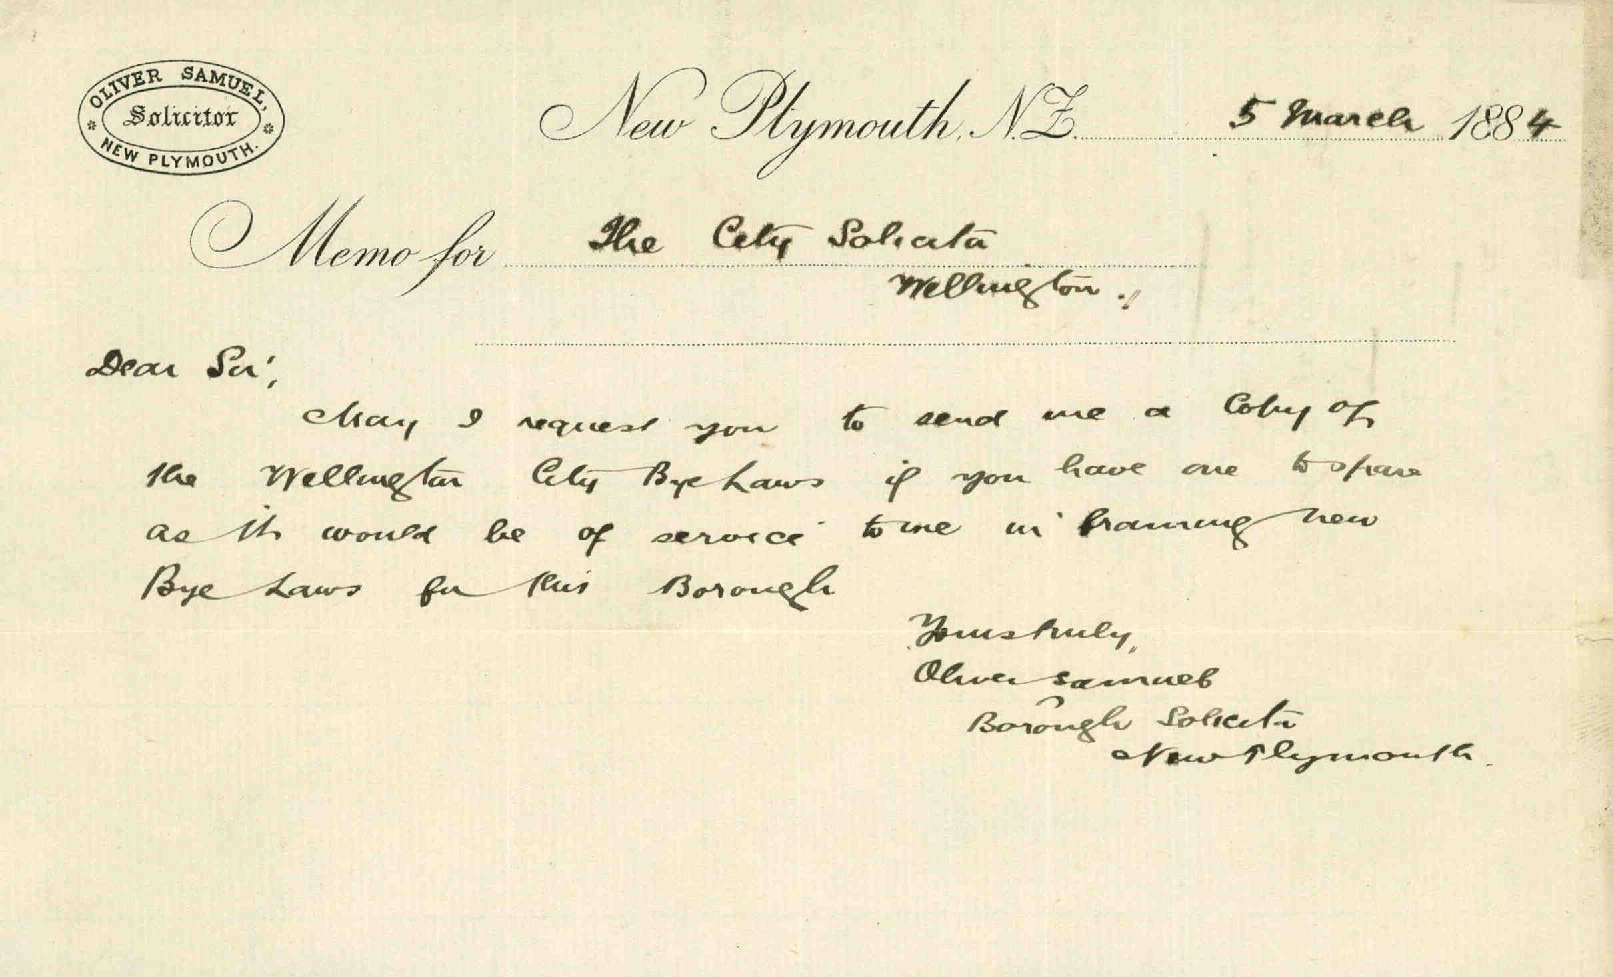 OLIVER SAMUEL,
Solicitor
NEW PLYMOUTH.
New Plymouth, N.Z. 5 March 1884
Memo for The City Solicitor
Wellington.
Dear Sir,
May I request you to send me a Copy of
the Wellington City Bye Laws if you have one to spare
as it would be of service to me in framing new
Bye Laws for this Borough
Yours truly,
Oliver Samuel
Borough Solicitor
New Plymouth.